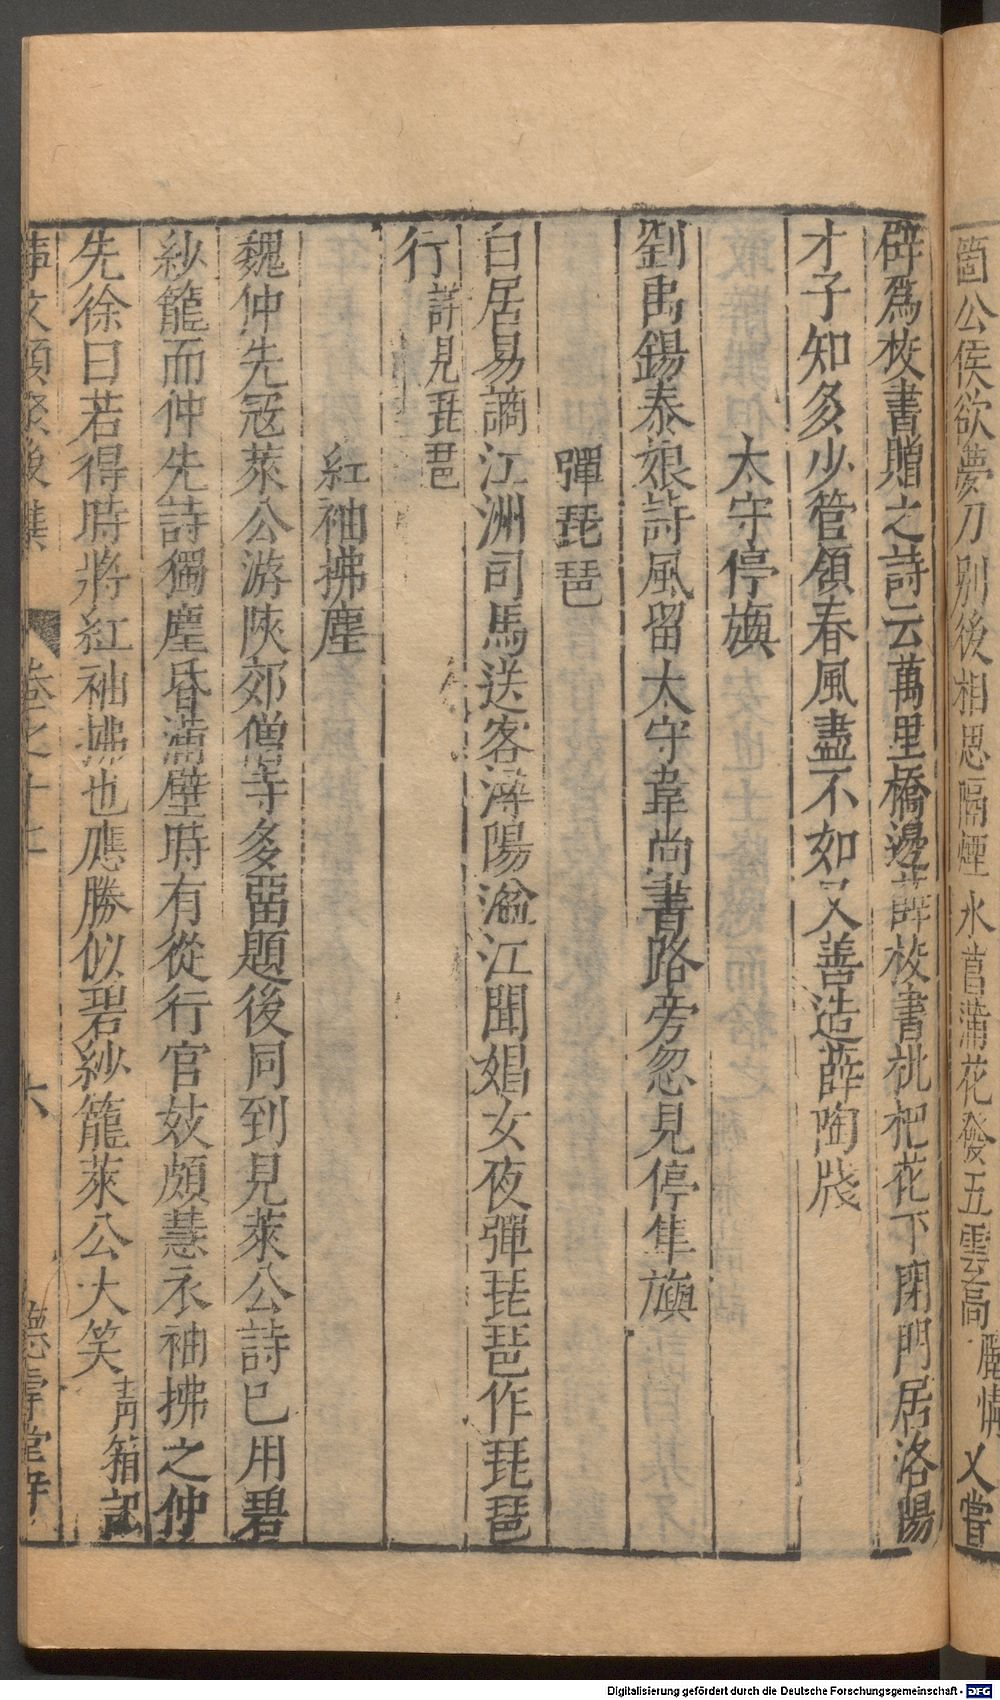 箇公侯欲夢刀別後相思隔煙水菖蒲花發五雲高麗情又嘗
辟爲校書贈之詩云萬里橋邊薛校書枇杷花下閉門居洛陽
才子知多少管領春風盡不如又善造薛陶牋
太守停旟
劉禹錫泰娘詩風留太守韋尚書路旁忽見停隼旟
彈琵琶
白居易謫江洲司馬送客潯陽湓江聞娼女夜彈琵琶作琵琶
行詳見琵琶
紅袖拂塵
魏仲先冦萊公游陜郊僧寺多畱題後同到見萊公詩已用碧
紗籠而仲先詩獨塵昏滿壁時有從行官妓頗慧衣袖拂之仲
先徐曰若得時將紅袖拂也應勝似碧紗籠萊公大笑青箱記
事文類聚後集 卷之十七 六 德壽堂梓
Digitalisierung gefördert durch die Deutsche Forschungsgemeinschaft - DFG